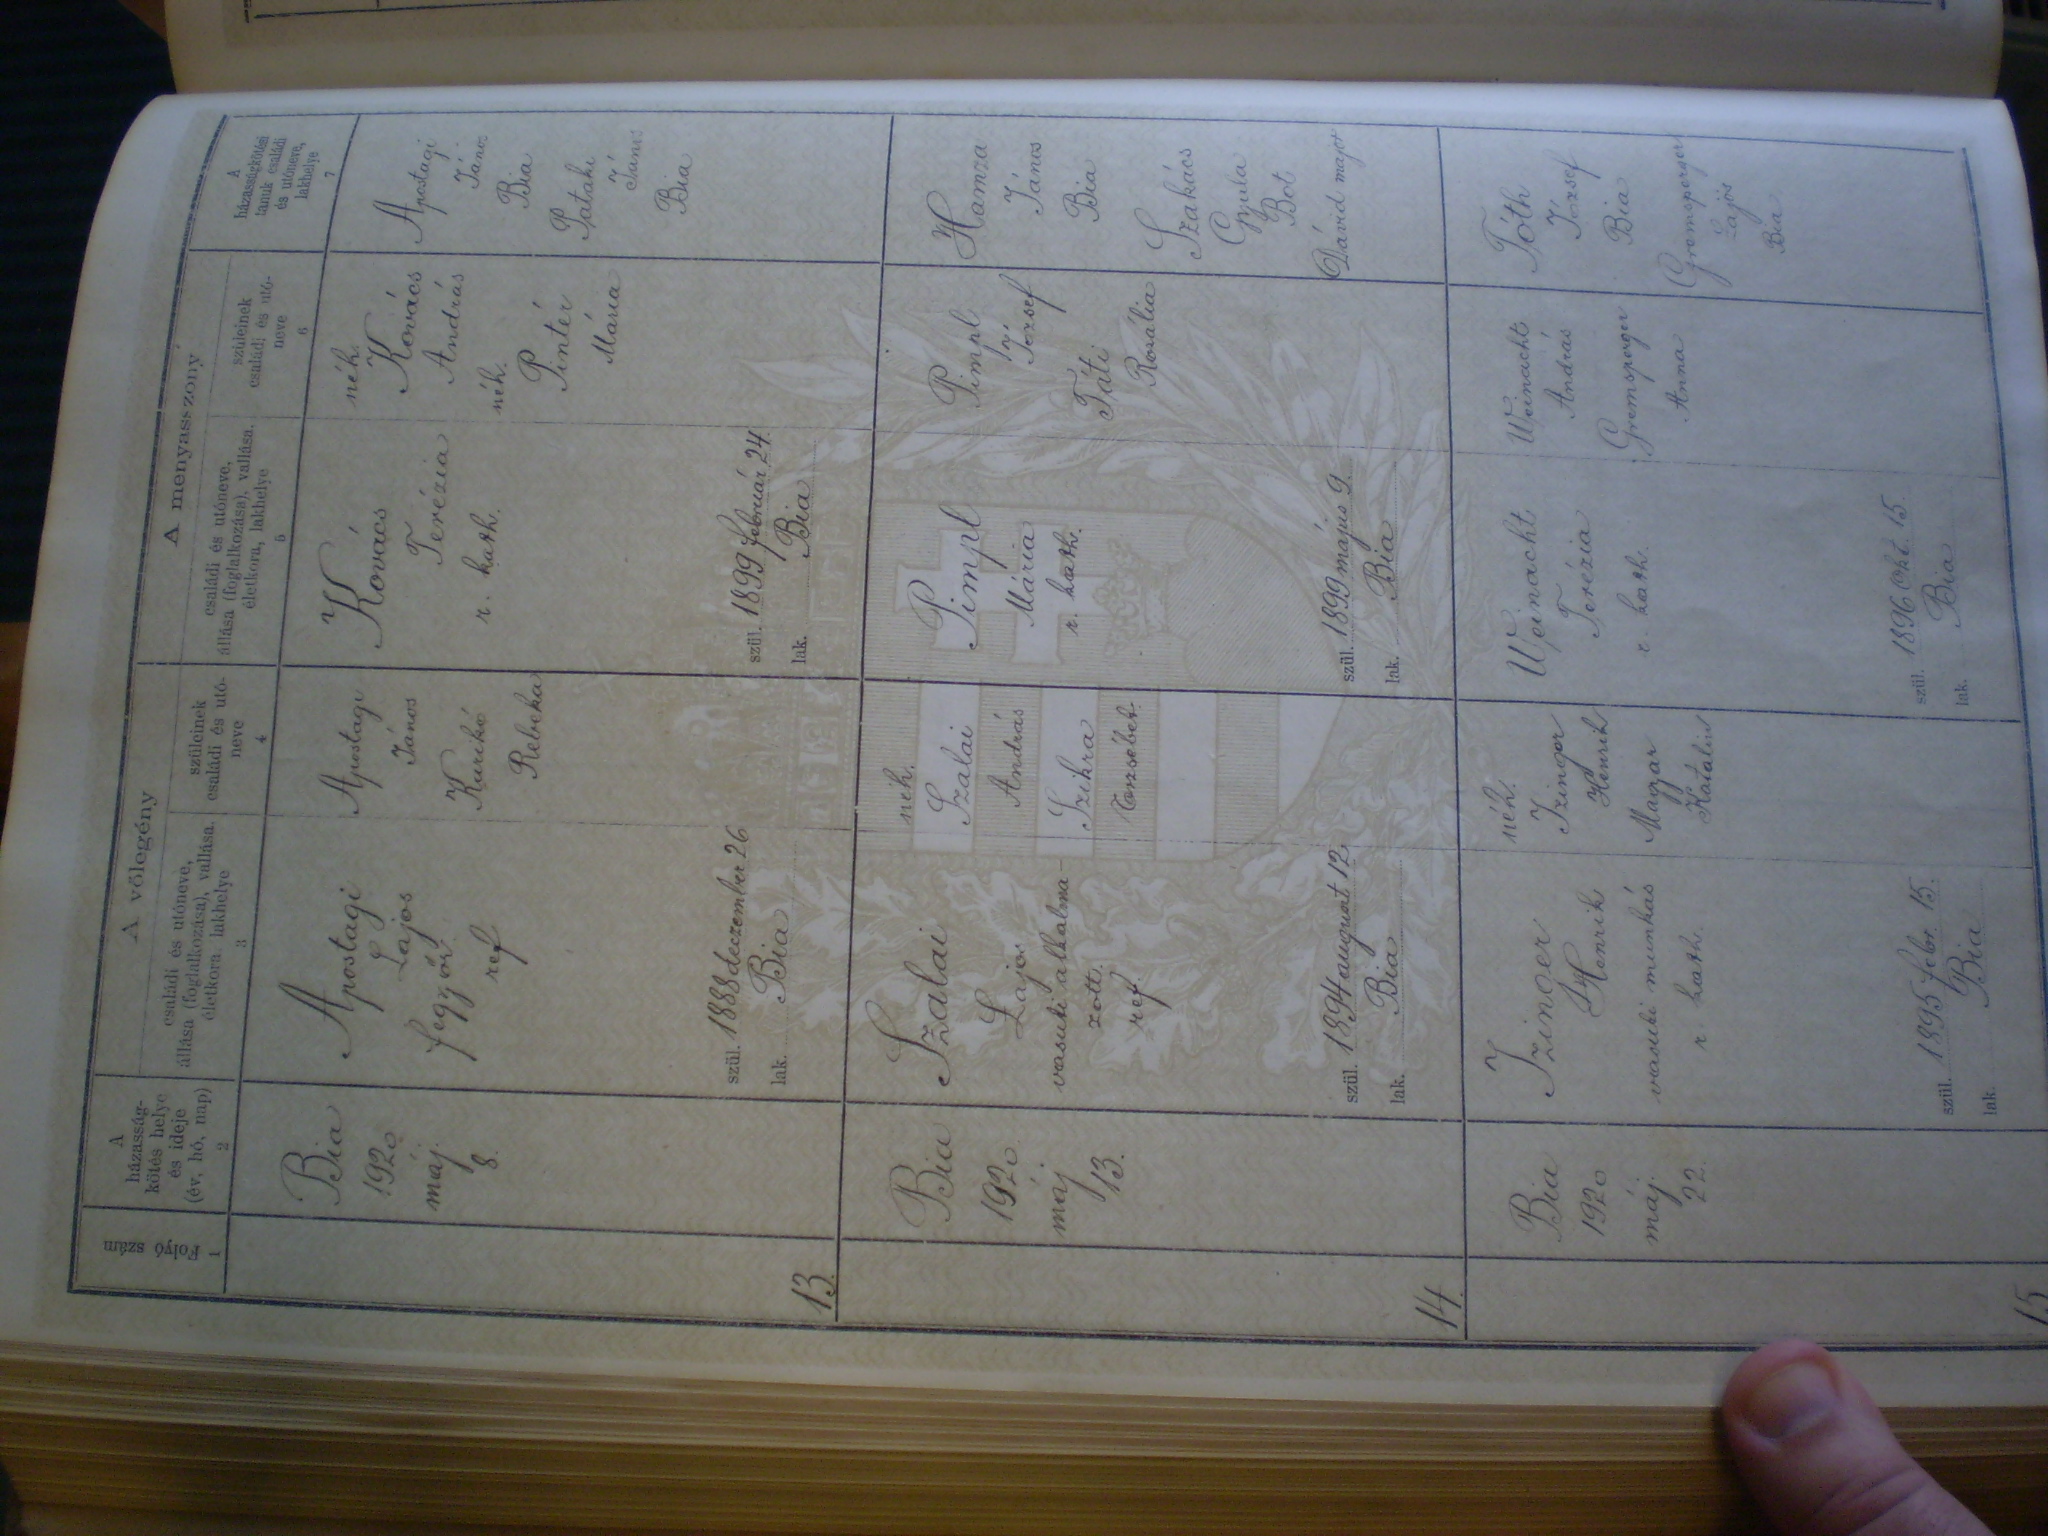 A
házasság-
kötés helye
és ideje
(év, hó, nap)
2
Folyó
szám
1
A vőlegény
családi és utóneve,
állása (foglalkozása), vallása,
életkora, lakhelye
3
szüleinek
családi és utó-
neve
4
A menyasszony
családi és utóneve,
állása (foglalkozása), vallása,
életkora, lakhelye
5
szüleinek
családi és utó-
neve
6
A
házasságkötési
tanuk családi
és utóneve,
lakhelye
7
13.
Bia
1920
máj.
8.
Apostagi
Lajos
fegyőr
ref
szül. 1888 deczember 26
lak. Bia
Apostagi
János
Kurikó
Rebeka
Kovács
Terézia
r. kath.
szül. 1899 február 24.
lak. Bia
néh.
Kovács
András
néh.
Pintér
Mária
Apostagi
János
Bia
Pataki
János
Bia
14.
Bia
1920
máj
13.
Szalai
Lajos
vasuti alkalma-
zott.
ref.
szül. 1894 august 12.
lak. Bia
néh.
Szalai
András
Szikra
Erzsébet
Pimpl
Mária
r. kath.
szül. 1899 május 9.
lak. Bia
Pimpl
József
Táti
Rozália
Hamza
János
Bia
Szakács
Gyula
Bot
Dávid major
15
Bia
1920
máj.
22.
Izinger
Henrik
vasuti munkás
r. kath.
szül. 1895 febr. 15.
lak. Bia
néh.
Izinger
Henrik
Magyar
Katalin
Weinacht
Terézia
r. kath.
szül. 1896 Okt. 15
lak. Bia
Weinacht
András
Gremsperger
Anna
Tóth
József
Bia
Gremsperger
Lajos
Bia